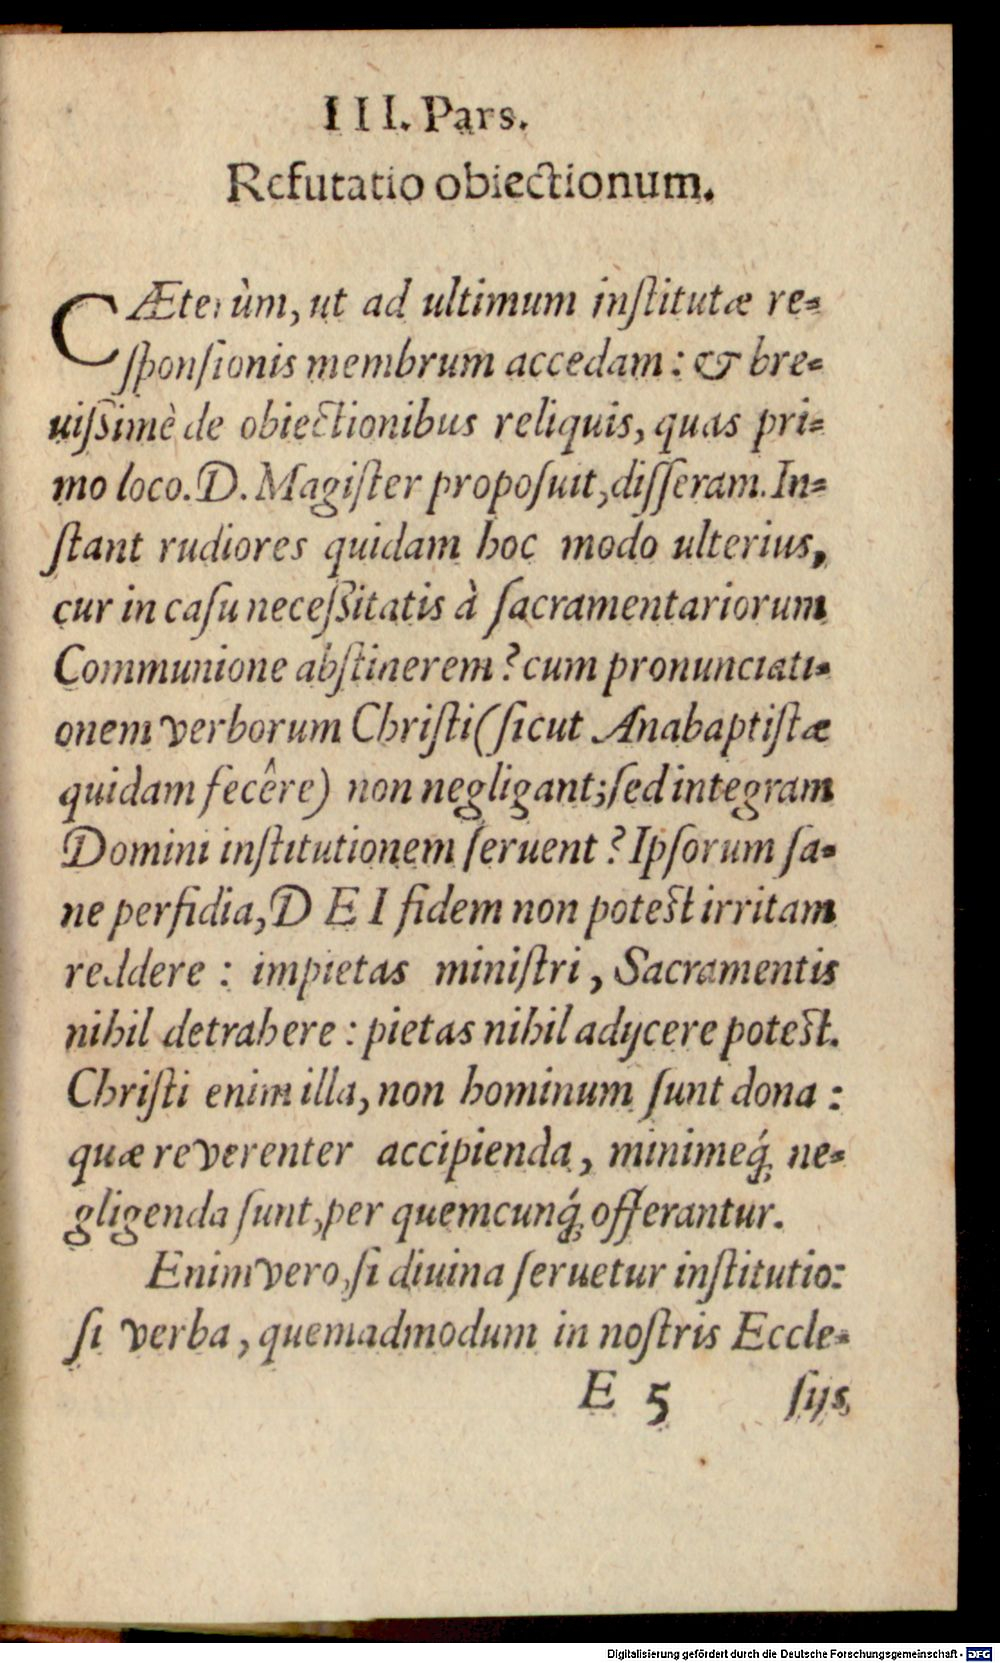 III. Pars.
Refutatio obiectionum.
CÆterùm, ut ad ultimum institutæ re-
sponsionis membrum accedam: & bre-
uissimè de obiectionibus reliquis, quas pri-
mo loco. D. Magister proposuit, disseram. In-
stant rudiores quidam hoc modo ulterius,
cur in casu necessitatis à sacramentariorum
Communione abstinerem? cum pronunciati-
onem verborum Christi (sicut Anabaptistæ
quidam fecêre) non negligant; sed integram
Domini institutionem seruent? Ipsorum sa-
ne perfidia, DEI fidem non potest irritam
reddere: impietas ministri, Sacramentis
nihil detrahere: pietas nihil adijcere potest.
Christi enim illa, non hominum sunt dona:
quæ reverenter accipienda, minimeq́; ne-
gligenda sunt, per quemcunq́; offerantur.
Enimvero, si diuina seruetur institutio:
si verba, quemadmodum in nostris Eccle-
E 5 sijs,
Digitalisierung gefördert durch die Deutsche Forschungsgemeinschaft - DFG